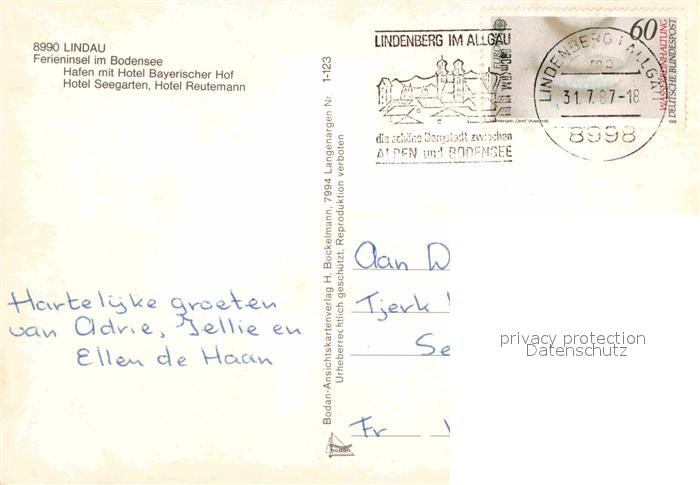 8990 LINDAU
Ferieninsel im Bodensee
Hafen mit Hotel Bayerischer Hof
Hotel Seegarten, Hotel Reutemann
Hartelijke groeten
van Adrie, Jellie en
Ellen de Haan
1-123
Bodan-Ansichtskartenverlag H. Bockelmann, 7994 Langenargen Nr.
Urheberrechtlich geschützt. Reproduktion verboten
bodan
LINDENBERG IM ALLGÄU
die schöne Bergstadt zwischen
ALPEN und BODENSEE
60
WASSERREINHALTUNG
DEUTSCHE BUNDESPOST
LINDENBERG i ALLGÄU
31.7.87-18
8998
Aan
Tjerk
Fr
privacy protection
Datenschutz